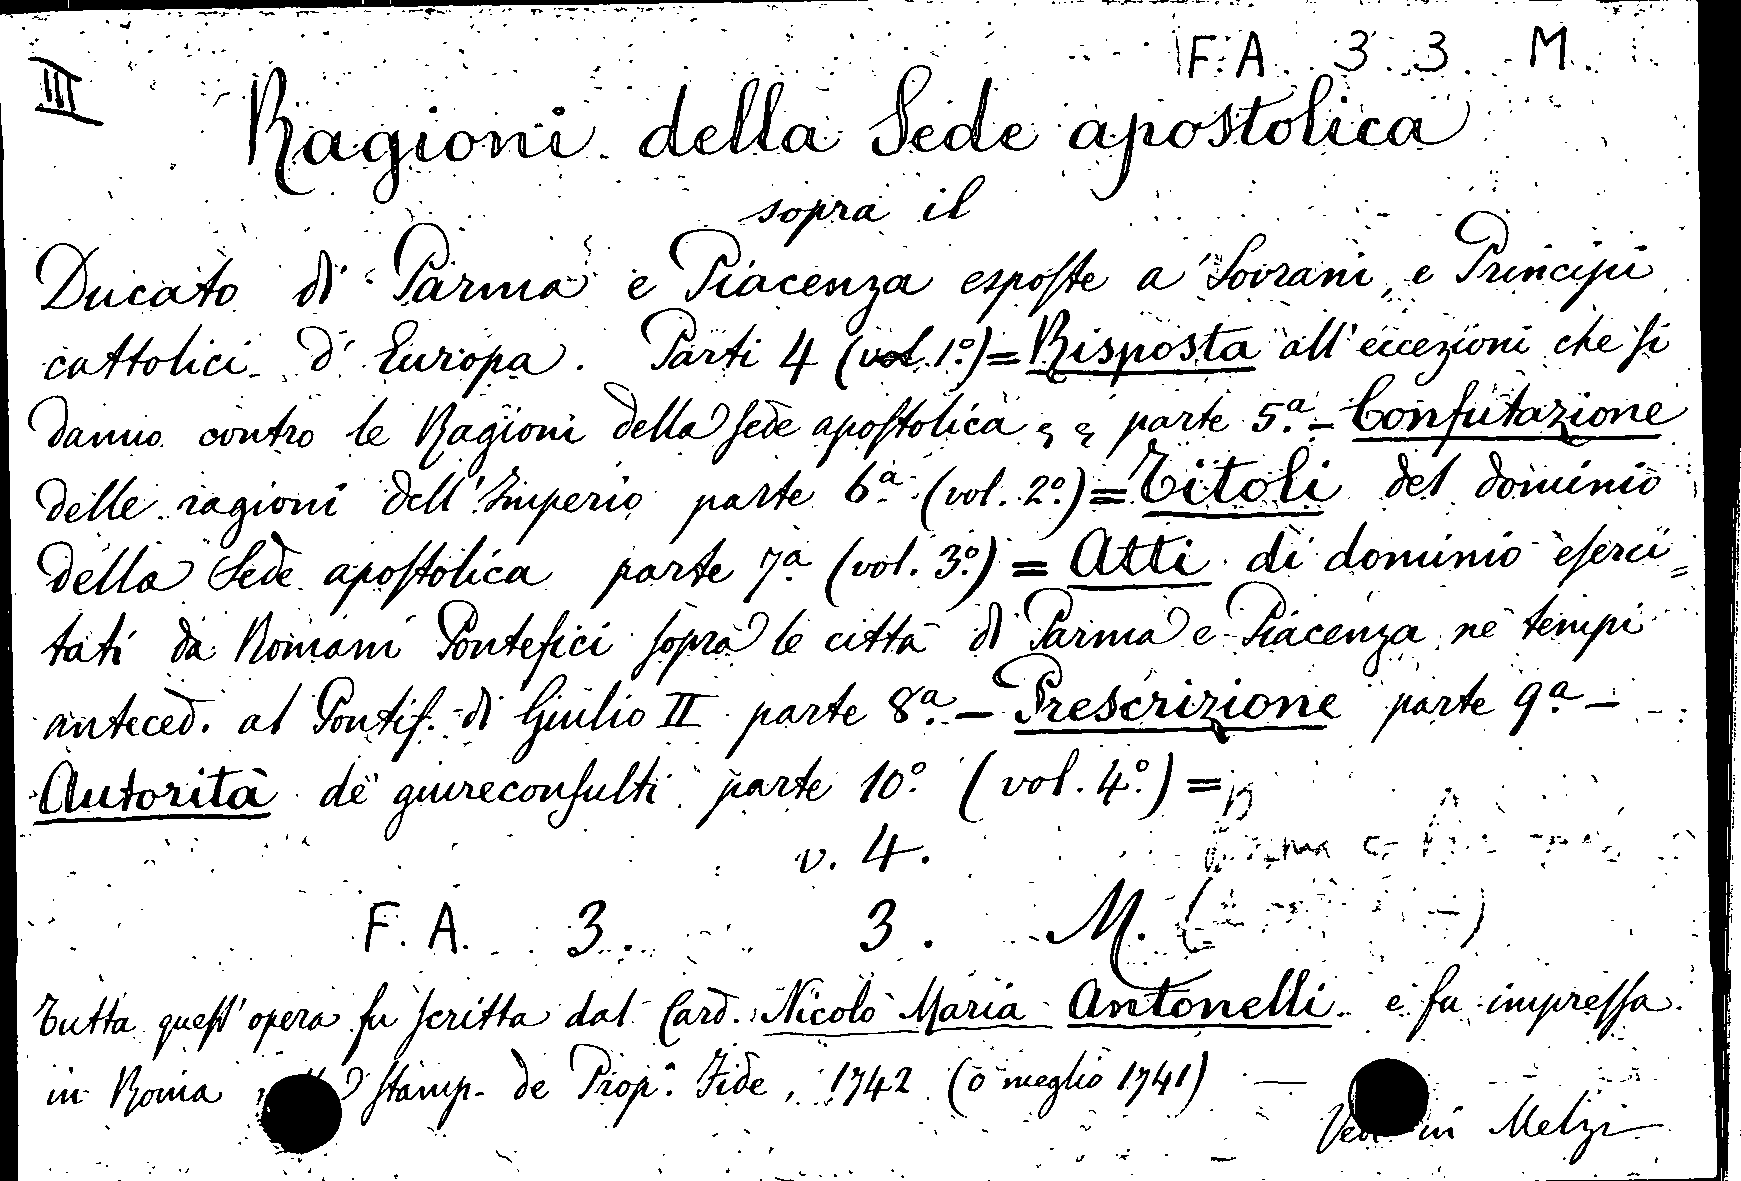 F. A. 3. 3. M.
III
Ragioni della Sede apostolica
sopra il
Ducato di Parma e Piacenza esposte a Sovrani, e Principi
cattolici d'Europa. Parti 4 (vol. 1º) = Risposta all'eccezioni che si
danno contro le Ragioni della sede apostolica, parte 5ª. - Confutazione
delle ragioni dell'Imperio parte 6ª. (vol. 2º.) = Titoli del dominio
della Sede apostolica parte 7ª (vol. 3º.) = Atti di dominio eserci=
tati da Romani Pontefici sopra le città di Parma e Piacenza ne tempi
anteced. al Pontif. di Giulio II parte 8ª. - Prescrizione parte 9ª -
Autorità de giureconsulti parte 10º. (vol. 4º.) =
v. 4.
F. A. 3. 3. M.
tutta quest'opera fu scritta dal Card. Nicolò Maria Antonelli e fu impressa
in Roma stamp. de Prop.ª Fide, 1742 (o meglio 1741) —
in Melzi